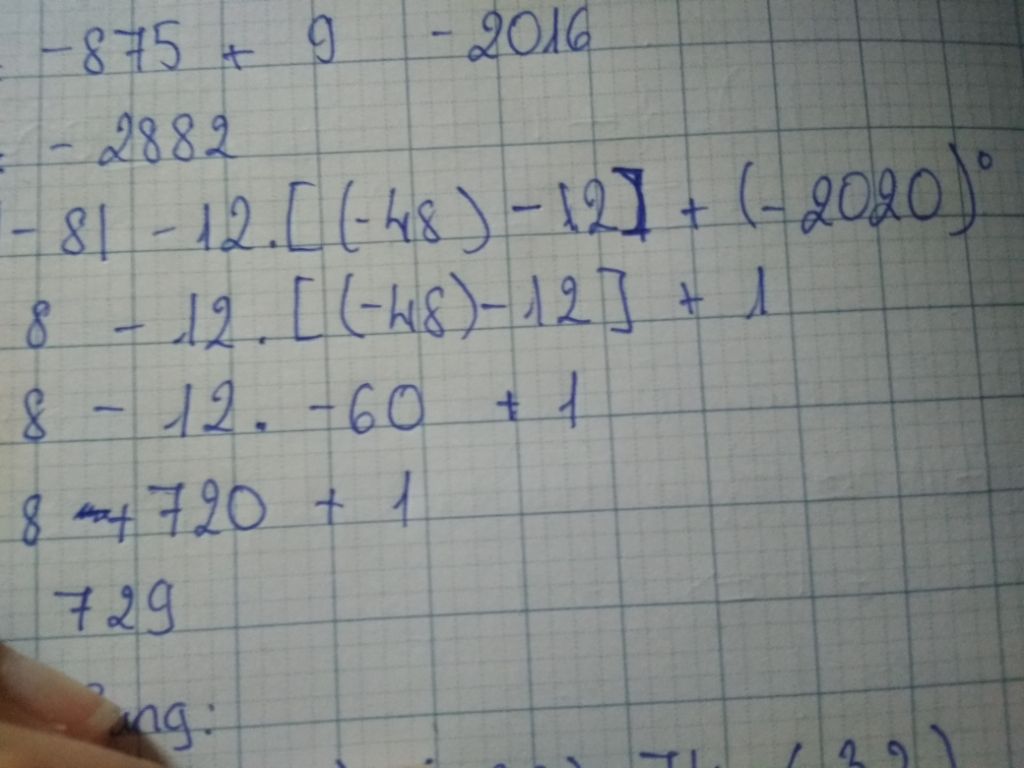 = -875 + 9 - 2016
= - 2882
|- 8| - 12. [(-48) - 12] + (- 2020)⁰
8 - 12. [(-48) - 12] + 1
8 - 12. -60 + 1
8 + 720 + 1
729